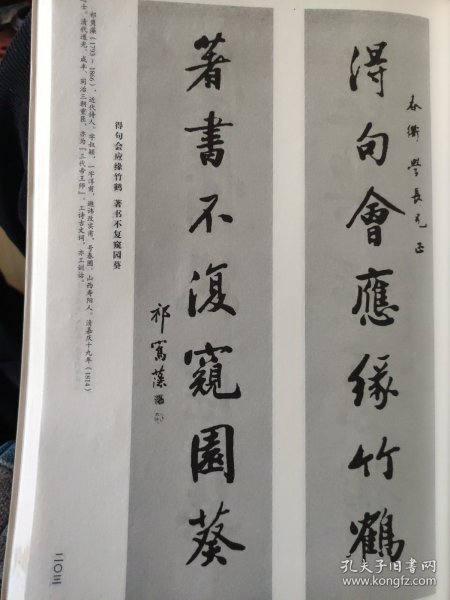 春衢學長兄正
得句會應緣竹鶴
著書不復窺園葵
祁寯藻
得句会应缘竹鹤 著书不复窥园葵
祁寯藻（1793－1866），近代诗人。字叔颖，一字淳甫，避讳改实甫，号春圃，山西寿阳人。清嘉庆十九年（1814）
士。清代道光、咸丰、同治三朝重臣，亦为「三代帝王师」。工诗古文词，亦工训诂。
二〇三
孔夫子旧书网
www.kongfz.com